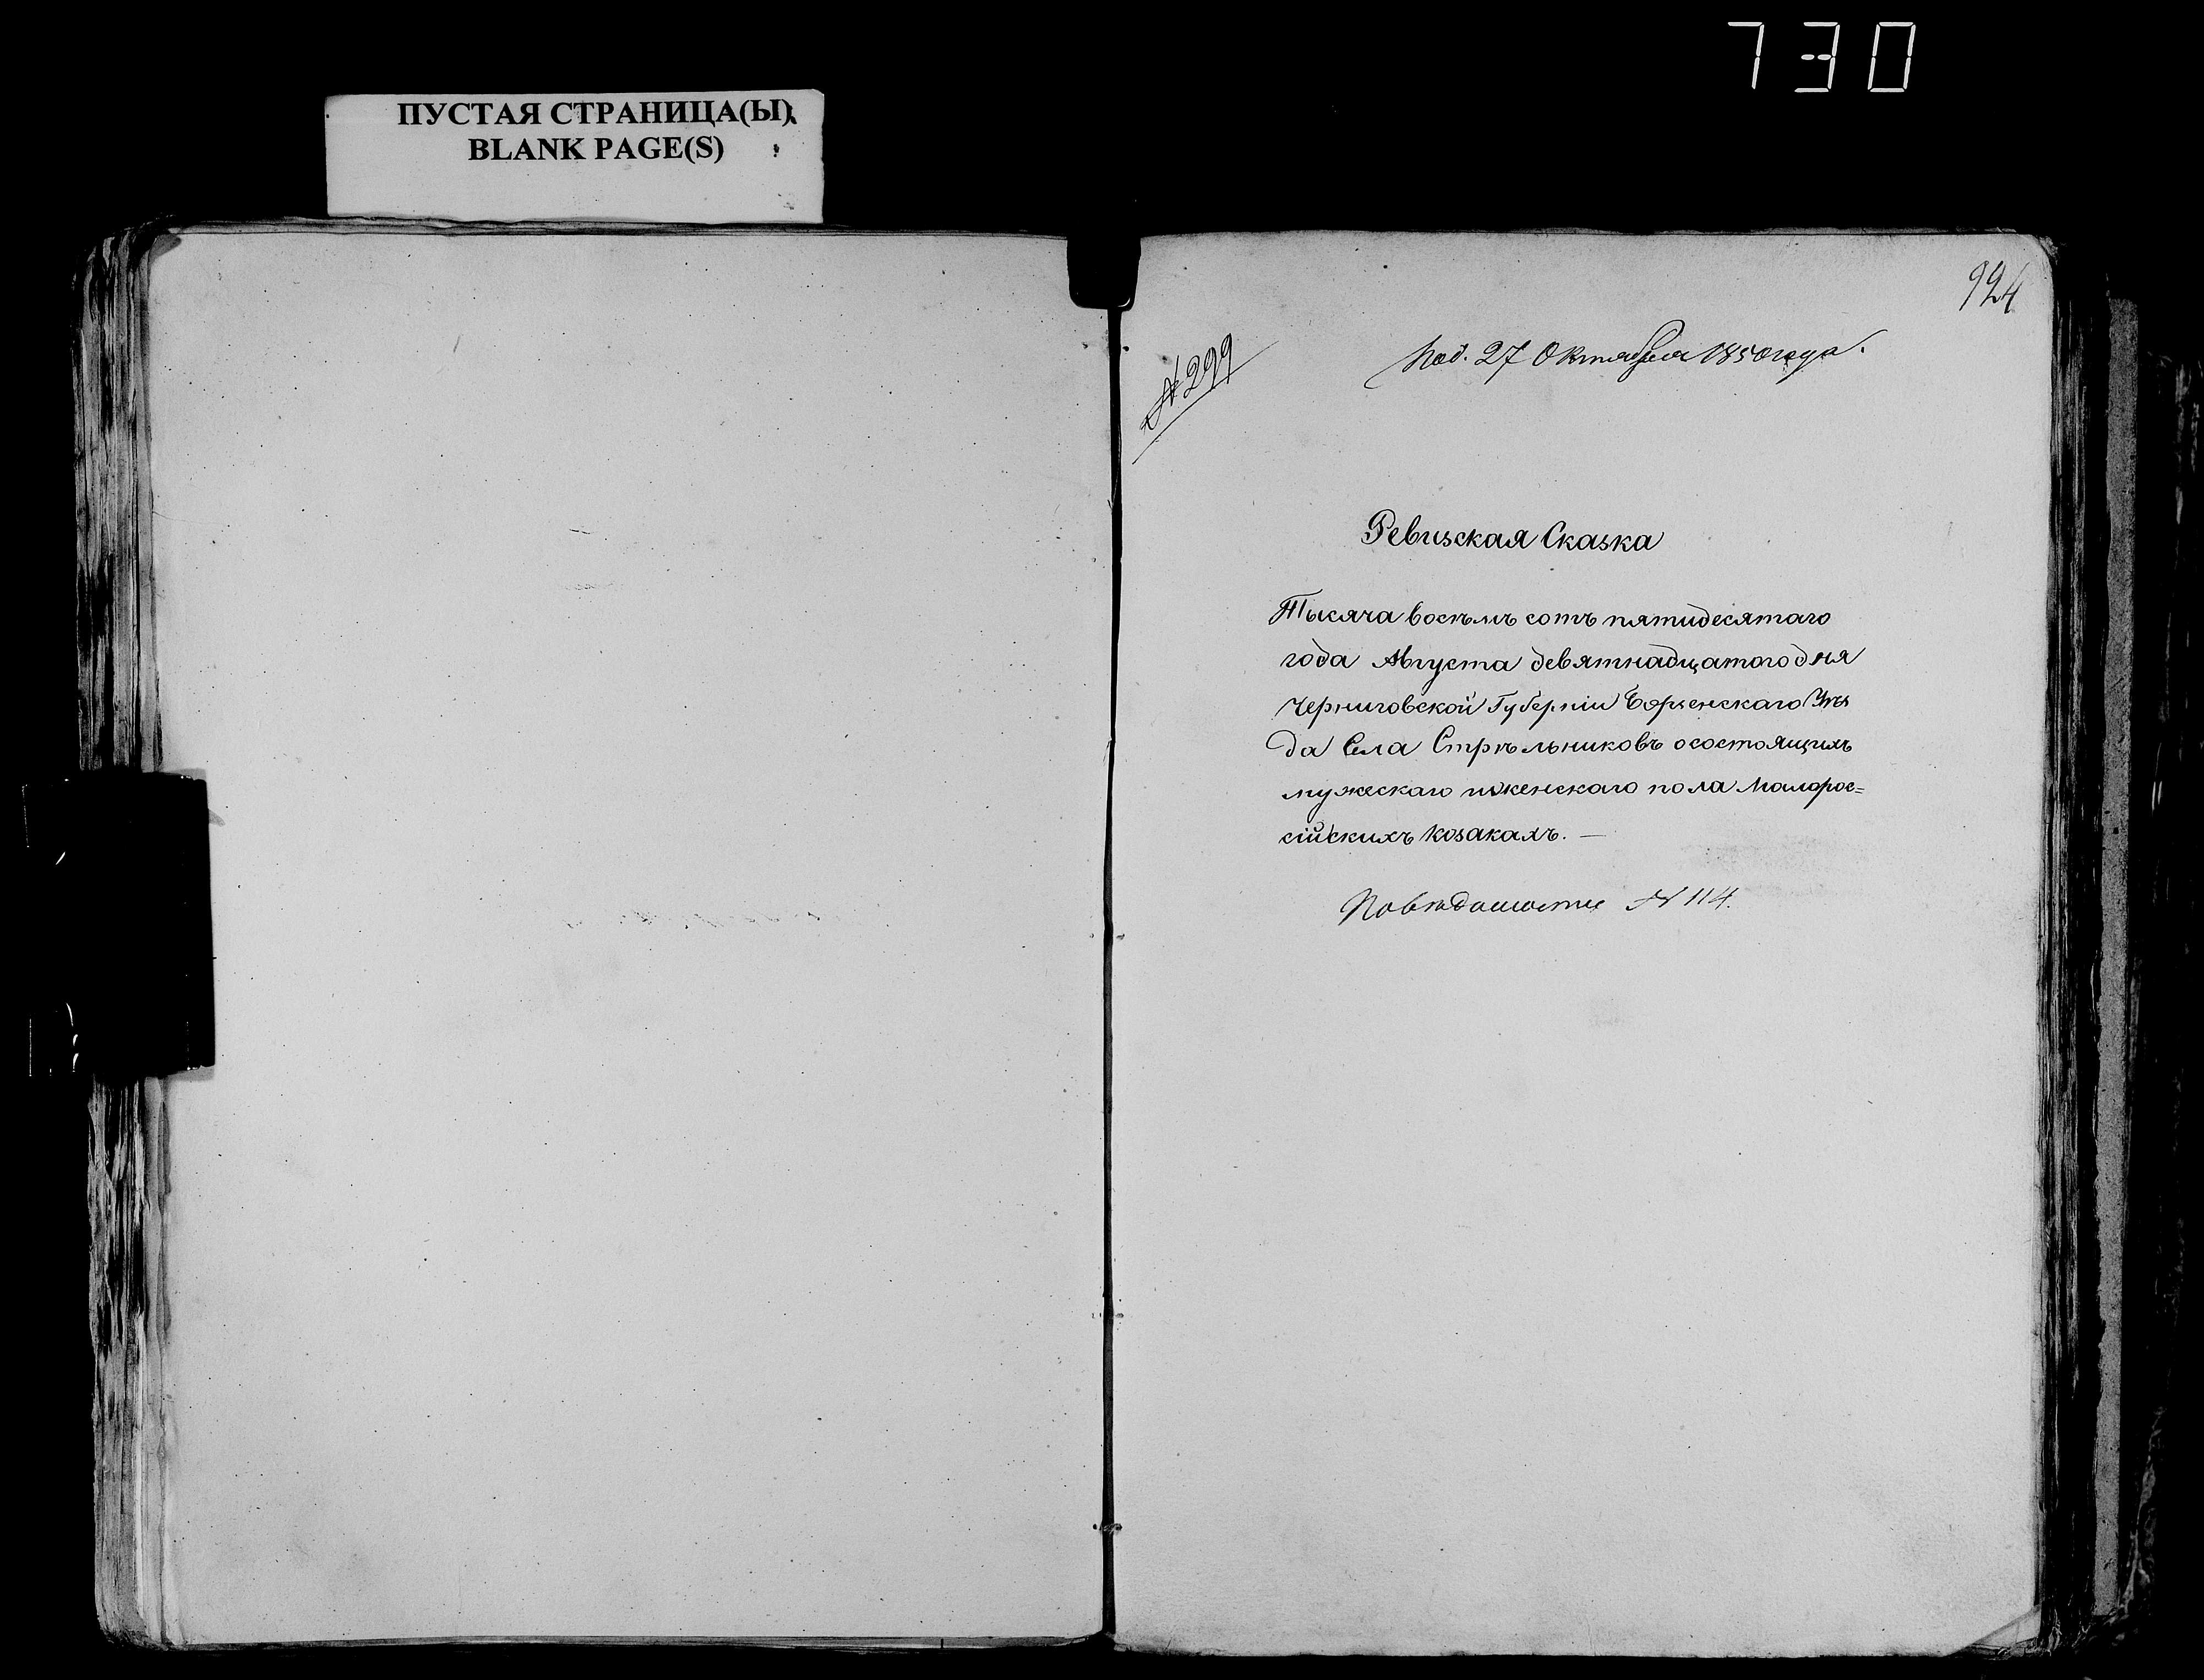 730
ПУСТАЯ СТРАНИЦА(Ы)
BLANK PAGE(S)
924
№ 299
Под. 27 Октября 1850 года.
Ревизская Сказка
Тысяча восѣмъ сотъ пятидесятаго
года Августа девятнадцатого дня
Черниговской Губерніи Борзенскаго Уѣз
да Села Стрѣльниковъ о состоящихъ
мужескаго и женскаго пола Малорос=
сійскихъ козакахъ. —
По вѣдомости № 114.